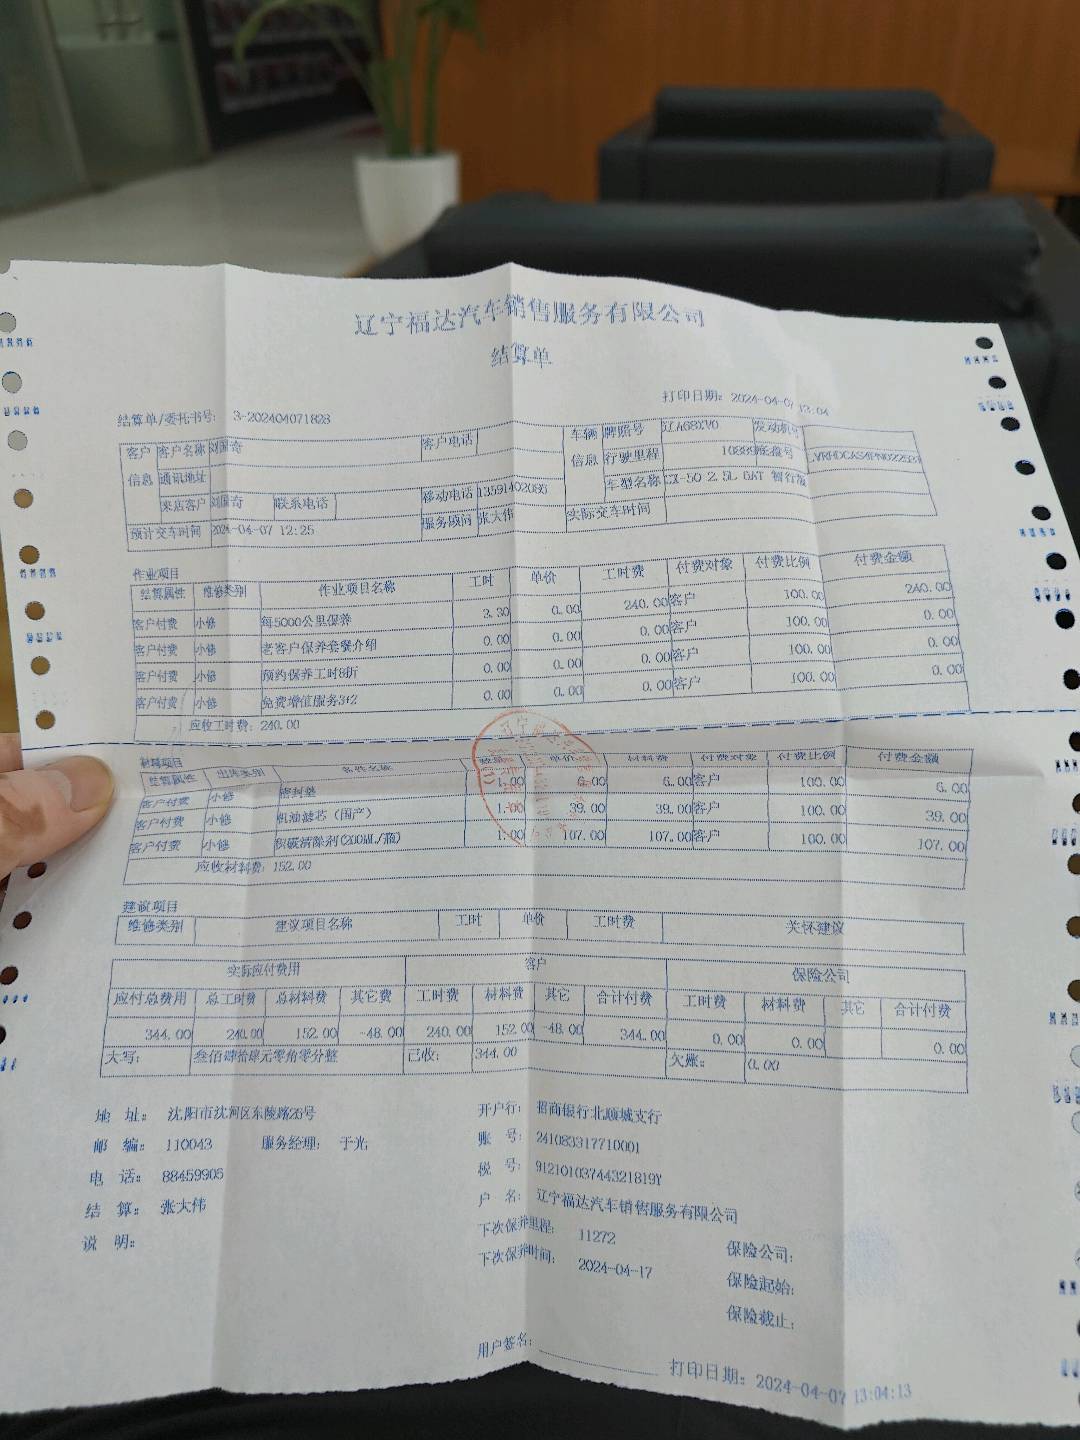 辽宁福达汽车销售服务有限公司
结算单
结算单/委托书号: 3-202404071828
打印日期: 2024-04-07 13:04
客户信息 客户名称 客户电话 车辆信息 牌照号 发动机号
通讯地址 行驶里程 10889 底盘号
来店客户 联系电话 移动电话 13591402085 车型名称 CX-50 2.5L 6AT
预计交车时间 2024-04-07 12:25 服务顾问 张大伟 实际交车时间
作业项目
结算属性 维修类别 作业项目名称 工时 单价 工时费 付费对象 付费比例 付费金额
客户付费 小修 每5000公里保养 3.30 0.00 240.00 客户 100.00 240.00
客户付费 小修 老客户保养套餐介绍 0.00 0.00 0.00 客户 100.00 0.00
客户付费 小修 预约保养工时8折 0.00 0.00 0.00 客户 100.00 0.00
客户付费 小修 免费增值服务3f2 0.00 0.00 0.00 客户 100.00 0.00
应收工时费: 240.00
结算属性 出库类别 备件名称 数量 单价 材料费 付费对象 付费比例 付费金额
客户付费 小修 密封垫 1.00 6.00 6.00 客户 100.00 6.00
客户付费 小修 机油滤芯 (国产) 1.00 39.00 39.00 客户 100.00 39.00
客户付费 小修 积碳清除剂(200ML/瓶) 1.00 107.00 107.00 客户 100.00 107.00
应收材料费: 152.00
建议项目
维修类别 建议项目名称 工时 单价 工时费 关怀建议
实际应付费用 客户 保险公司
应付总费用 总工时费 总材料费 其它费 工时费 材料费 其它 合计付费 工时费 材料费 其它 合计付费
344.00 240.00 152.00 -48.00 240.00 152.00 -48.00 344.00 0.00 0.00 0.00
大写: 叁佰肆拾肆元零角零分整 已收: 344.00 欠账: 0.00
地 址: 沈阳市沈河区东陵路26号 开户行: 招商银行北顺城支行
邮 编: 110043 服务经理: 于光 账 号: 241083317710001
电 话: 88459905 税 号: 91210103744321819Y
结 算: 张大伟 户 名: 辽宁福达汽车销售服务有限公司
说 明: 下次保养里程: 11272 保险公司:
下次保养时间: 2024-04-17 保险起始:
保险截止:
用户签名:
打印日期: 2024-04-07 13:04:13